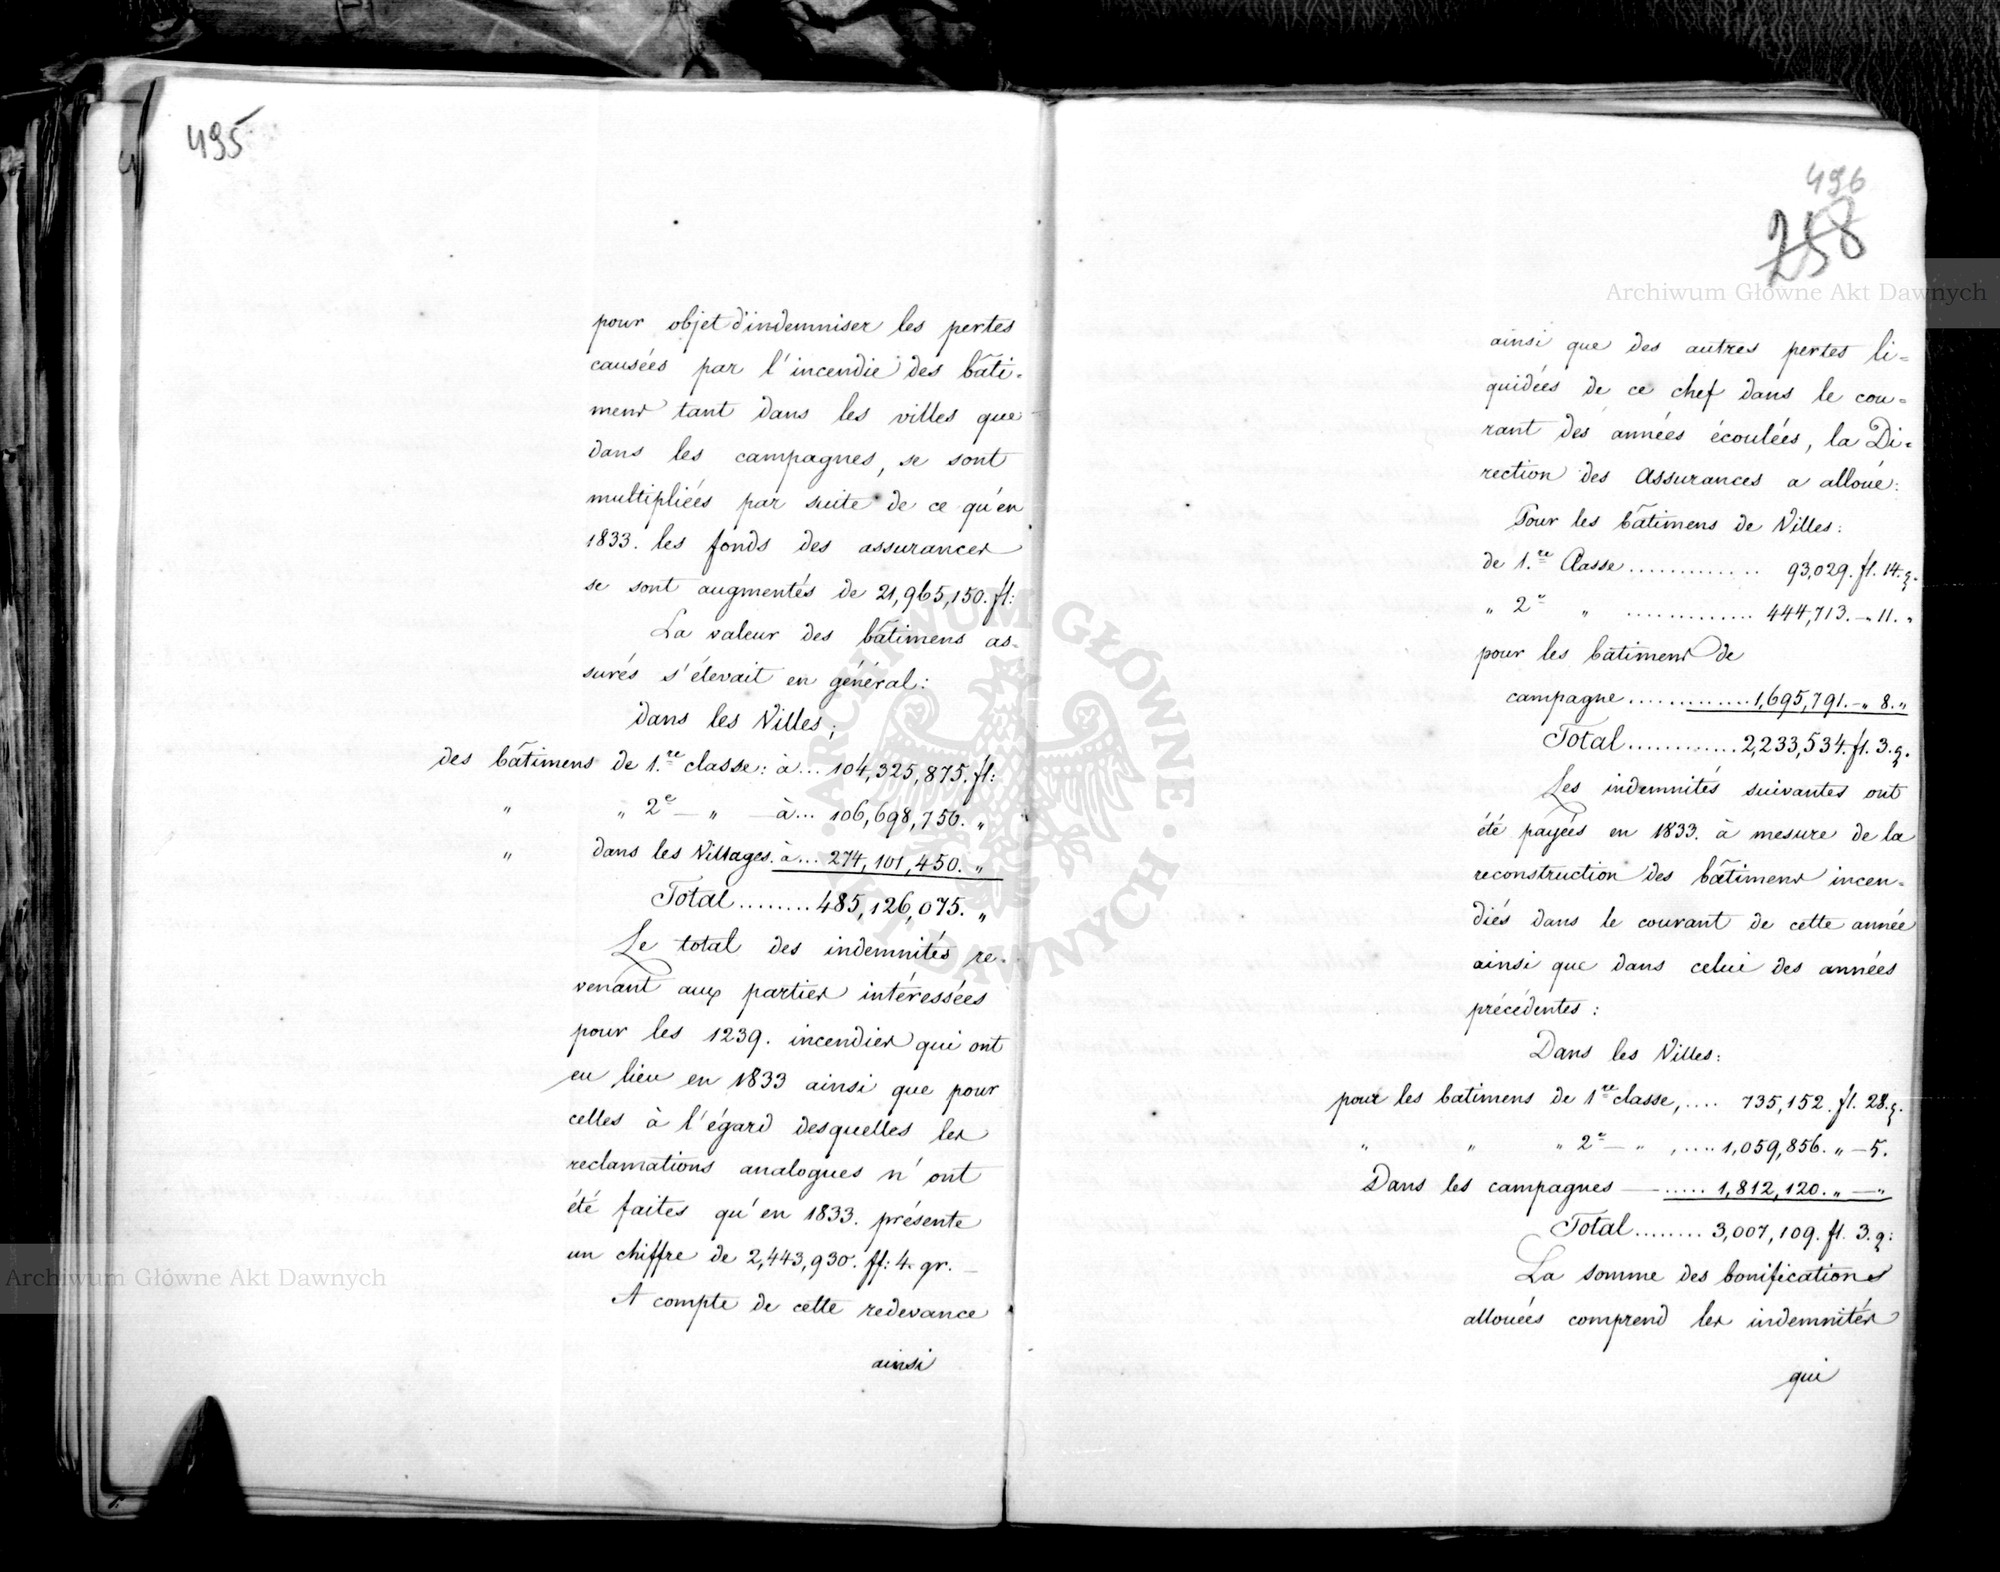 495
pour objet d'indemniser les pertes
causées par l'incendie des bâti-
mens tant dans les villes que
dans les campagnes, se sont
multipliées par suite de ce qu'en
1833. les fonds des assurances
se sont augmentés de 21,965,150. fl:
La valeur des bâtimens as-
surés s'élevait en général:
dans les Villes;
des bâtimens de 1.re classe: à... 104,325,875. fl:
" " 2e — " — à... 106,698,750. "
" dans les Villages. à... 274,101,450. "
Total........ 485,126,075. "
Le total des indemnités re-
venant aux parties intéressées
pour les 1239. incendies qui ont
eu lieu en 1833 ainsi que pour
celles à l'égard desquelles les
reclamations analogues n'ont
été faites qu'en 1833. présente
un chiffre de 2,443,930. ff: 4. gr. —
A compte de cette redevance
ainsi
496
258
ainsi que des autres pertes li=
quidées de ce chef dans le cou=
rant des années écoulées, la Di=
rection des Assurances a alloué:
Pour les bâtimens de Villes:
de 1.re Classe ............. 93,029. fl. 14. g.
" 2e " ............. 444,713. — " 11. "
pour les bâtimens de
campagne .............. 1,695,791. — " 8. "
Total ............ 2,233,534. fl. 3. g.
Les indemnités suivantes ont
été payées en 1833. à mesure de la
reconstruction des bâtimens incen-
diés dans le courant de cette année
ainsi que dans celui des années
précédentes:
Dans les Villes:
pour les batimens de 1re classe, .... 735,152. fl. 28. g.
" " " 2e — " , ..... 1,059,856. " — 5.
Dans les campagnes — ..... 1,812,120. " — "
Total ........ 3,007,109. fl. 3. g:
La somme des bonifications
allouées comprend les indemnités
qui
Archiwum Główne Akt Dawnych
Archiwum Główne Akt Dawnych
ARCHIWUM GŁÓWNE · AKT DAWNYCH ·